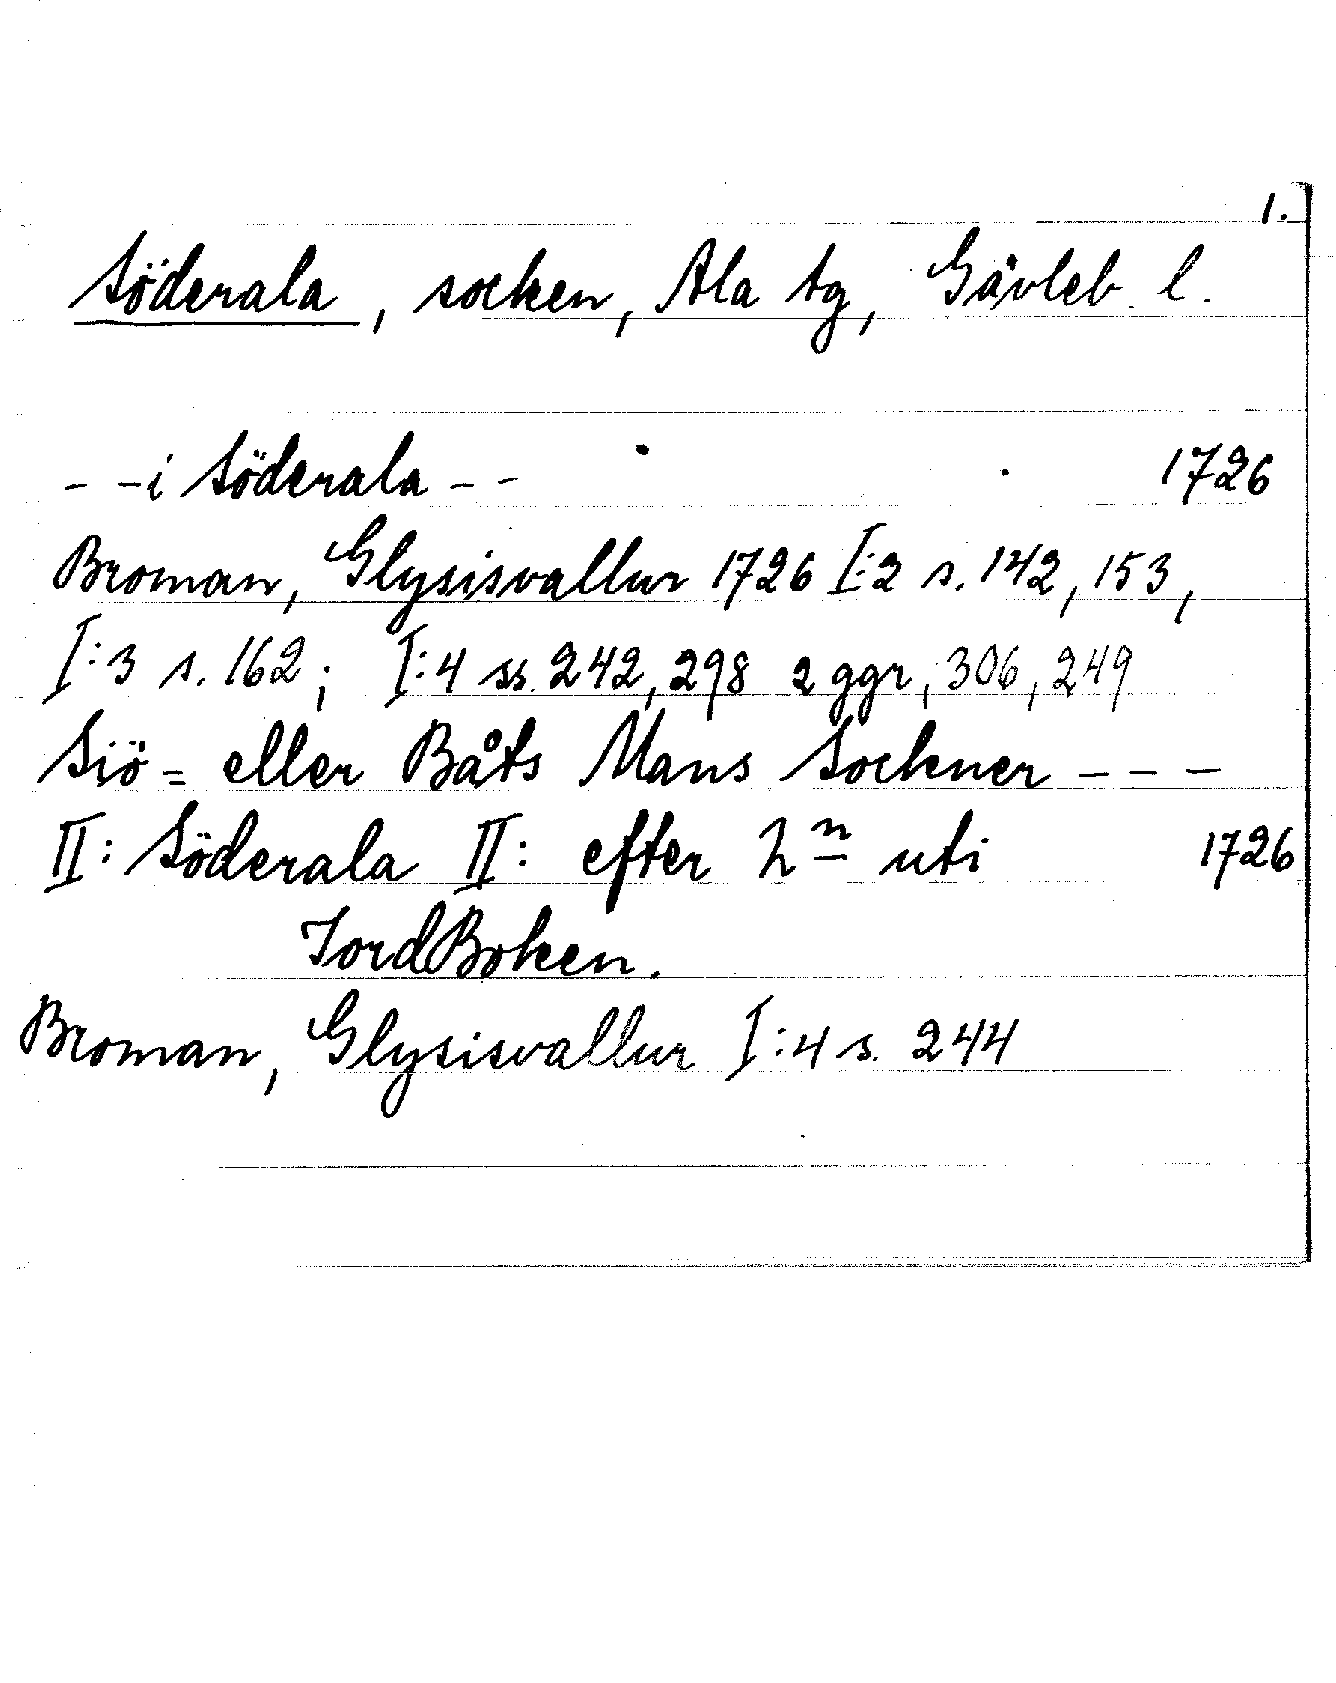 1.
Söderala, socken, Ala tg, Gävleb. l.
- - i Söderala - - 1726
Broman, Glysisvallur 1726 I:2 s. 142, 153,
I:3 s. 162; I:4 ss. 242, 298 2 ggr, 306, 249
Siö = eller Båts Mans Sockner - - -
II: Söderala II: efter hn uti 1726
JordBoken.
Broman, Glysisvallur I:4 s. 244